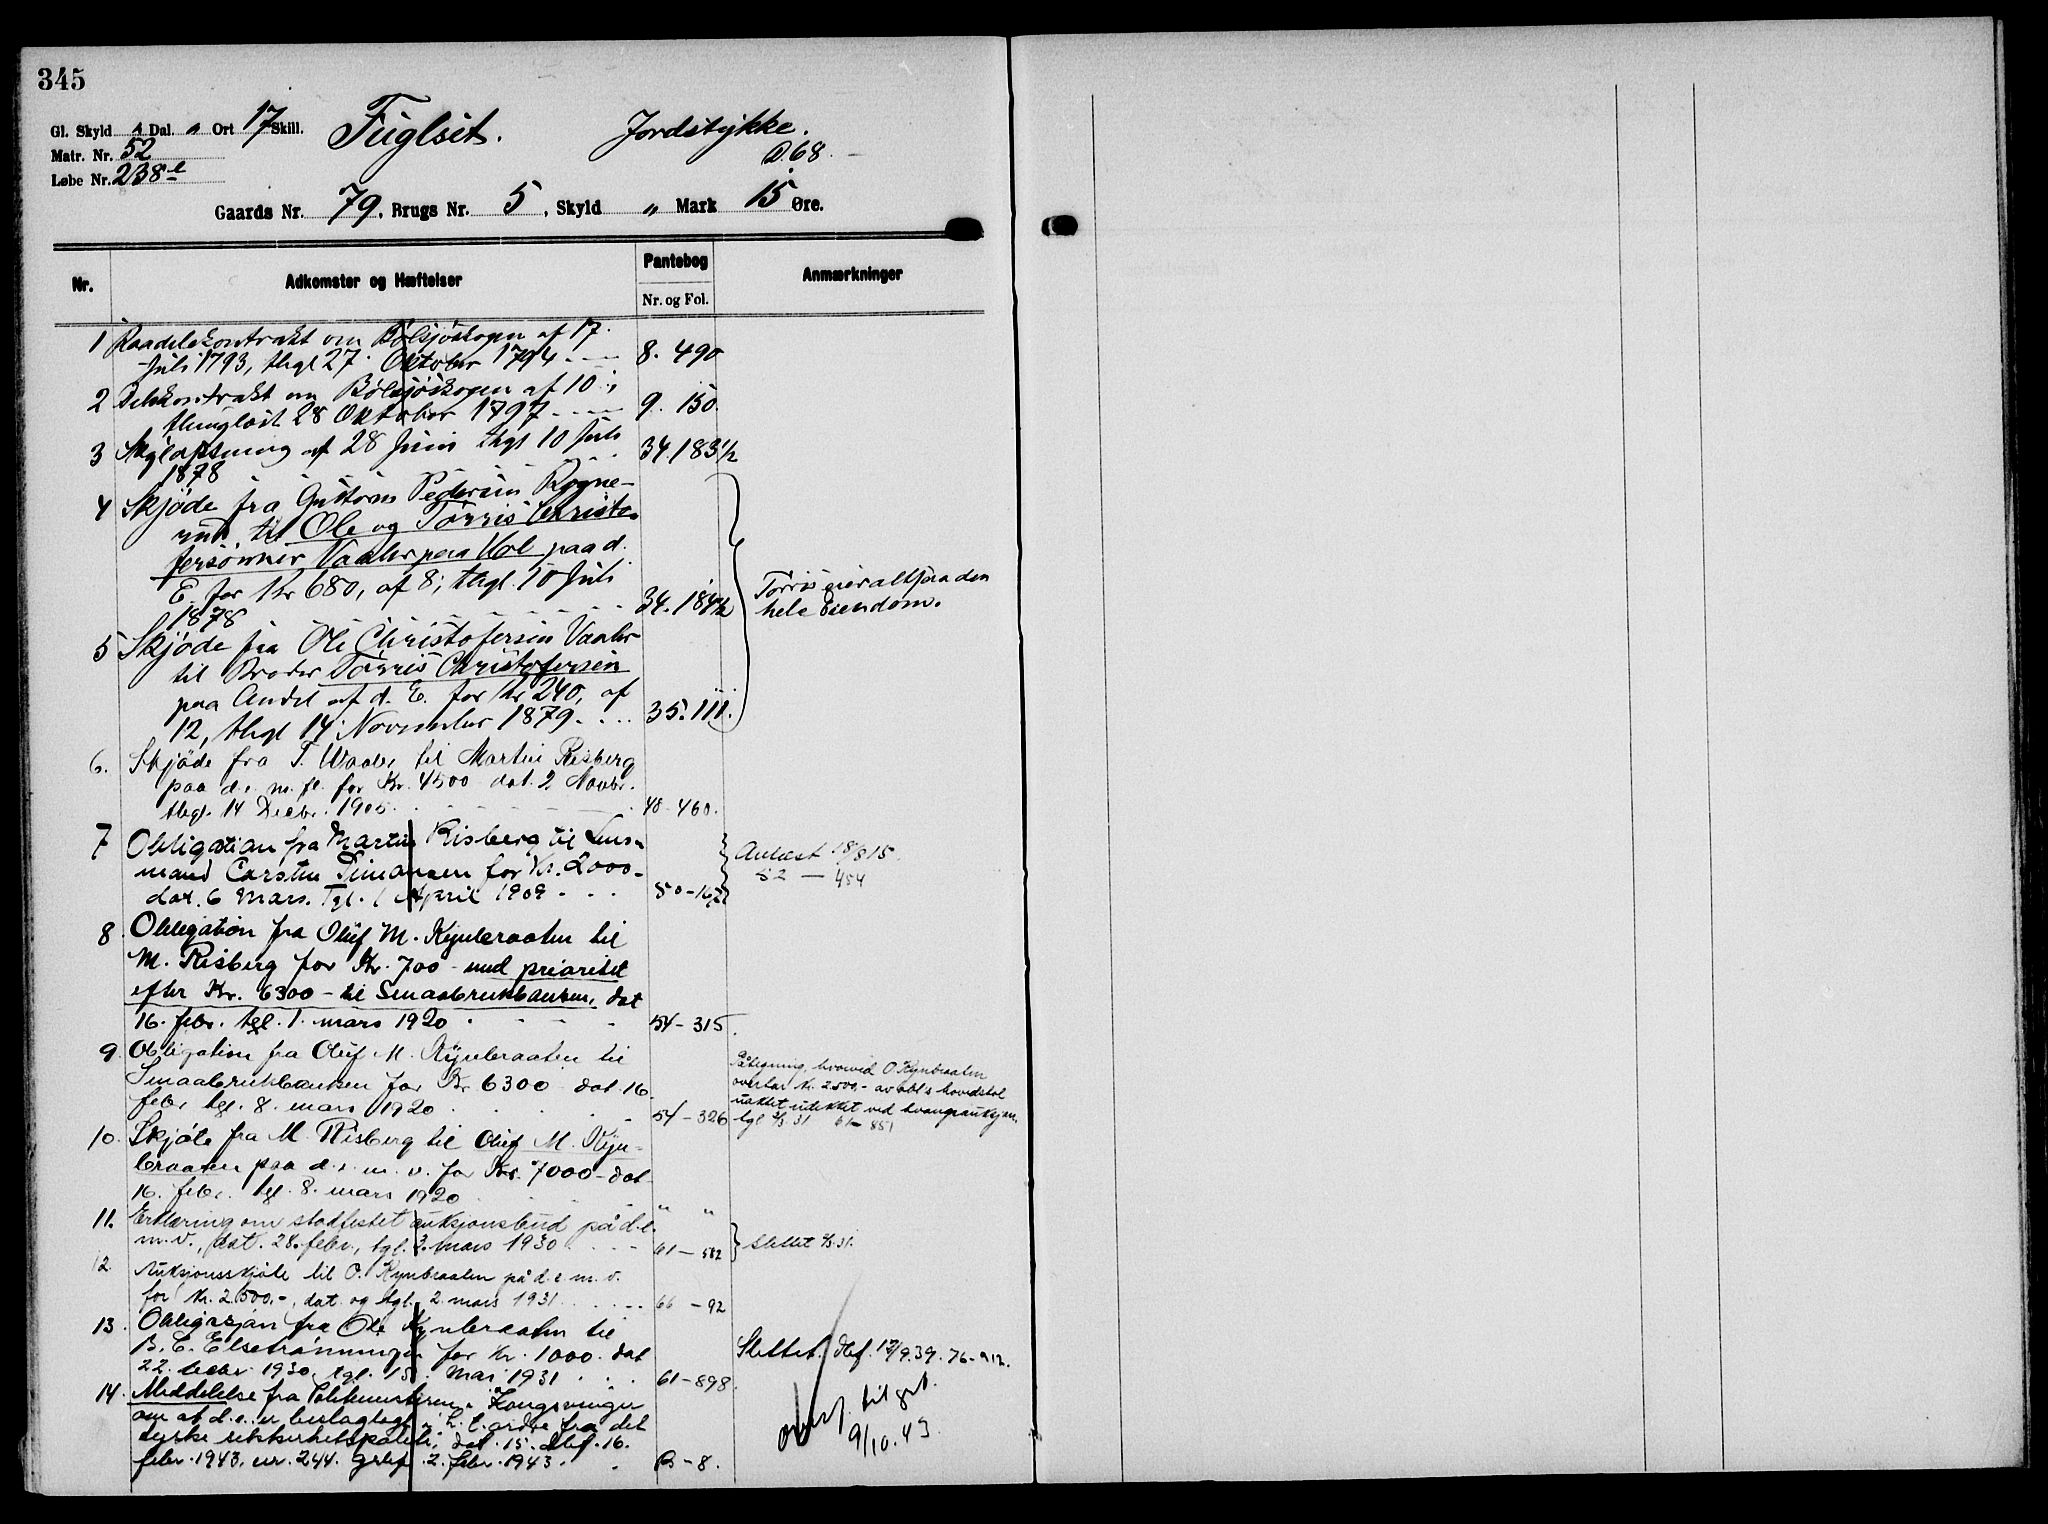 345
Gl. Skyld " Dal. " Ort 17 Skill. Fuglset. Jordstykke.
Matr. Nr. 52 D. 68.
Løbe Nr. 238 l
Gaards Nr. 79, Brugs Nr. 5, Skyld " Mark 15 Øre.
Nr. Adkomster og Hæftelser Pantebog Anmærkninger
Nr. og Fol.
1 Raadelskontrakt om Bølsjøskogen af 17.
Juli 1793, thgl 27. Oktober 1794. 8. 490
2 Delskontrakt om Bølsjøskogen af 10.,
thinglæst 28 Oktober 1797 9. 150.
3 af 28 Juni thgl 10 Juli
1878 34. 183½
4 Skjøde fra Gustav Pedersen Rogne-
rud til Ole og Torris Christo-
fersønner Vaaler paa Hol paa d.
E. for Kr 680, af 8; thgl. 10 Juli
1878 34. 184½
Torris eier altsaa den
hele Eiendom.
5 Skjøde fra Ole Christofersen Vaaler
til Broder Torris Christofersen
paa Andel af d. E. for Kr 240, af
12, thgl 14 November 1879. 35. 111.
6. Skjøde fra T. Waaler til Martin Risberg
paa d. e. m. fl. for Kr. 4500 dat. 2 Novbr.
thgl. 14 Decbr. 1905. 48-460.
7 Obligation fra Martin Risberg til Lens-
mand Carsten Simonsen for Kr. 2000-
dat. 6 Mars. Tgl. 1 April 1909 50-167
Avlæst 18/8 15.
52 - 454
8. Obligation fra Oluf M. Kynbraaten til
M. Risberg for Kr. 700 - med prioritet
efter Kr. 6300 - til Smaabrukbanken, dat
16. febr. tgl. 1. mars 1920 54-315.
9. Obligation fra Oluf M. Kynbraaten til
Smaabrukbanken for Kr. 6300 dat. 16.
febr. tgl. 8. mars 1920 54-326
Påtegning, hvorved O. Kynbraaten
overtar kr. 2500,- av obl.s hovedstol
uaktet udekket ved tvangsauksjon.
tgl 2/3 31 61-851
10. Skjøte fra M. Risberg til Oluf M. Kyn-
braaten paa d. e. m. v. for Kr. 7000-dat.
16. febr. tgl. 8. mars 1920 " "
11. Erklæring om stadfestet auksjonsbud på d. e.
m. v., dat. 28. febr., tgl. 3. mars 1930. 61-582
Slettet 2/3.31.
12. Auksjonsskjøte til O. Kynbraaten på d. e. m. v.
for kr. 2.500,-, dat. og tgl. 2. mars 1931 66-92
13. Obligasjon fra Ole Kynbraaten til
B. E. Elsetrønningen for kr. 1000. dat
22. 1930, tgl. 15. Mai 1931 61-898.
Slettet. dbf. 12/9.39. 76-912.
14. Meddelelse fra Politimesteren i Kongsvinger
om at d. e. er beslaglagt i h. t. ordre fra det
tyske sikkerhetspoliti, dat. 15. dbf. 16.
febr. 1943. nr. 244. 2. febr. 1943. B-8.
9/10.43.